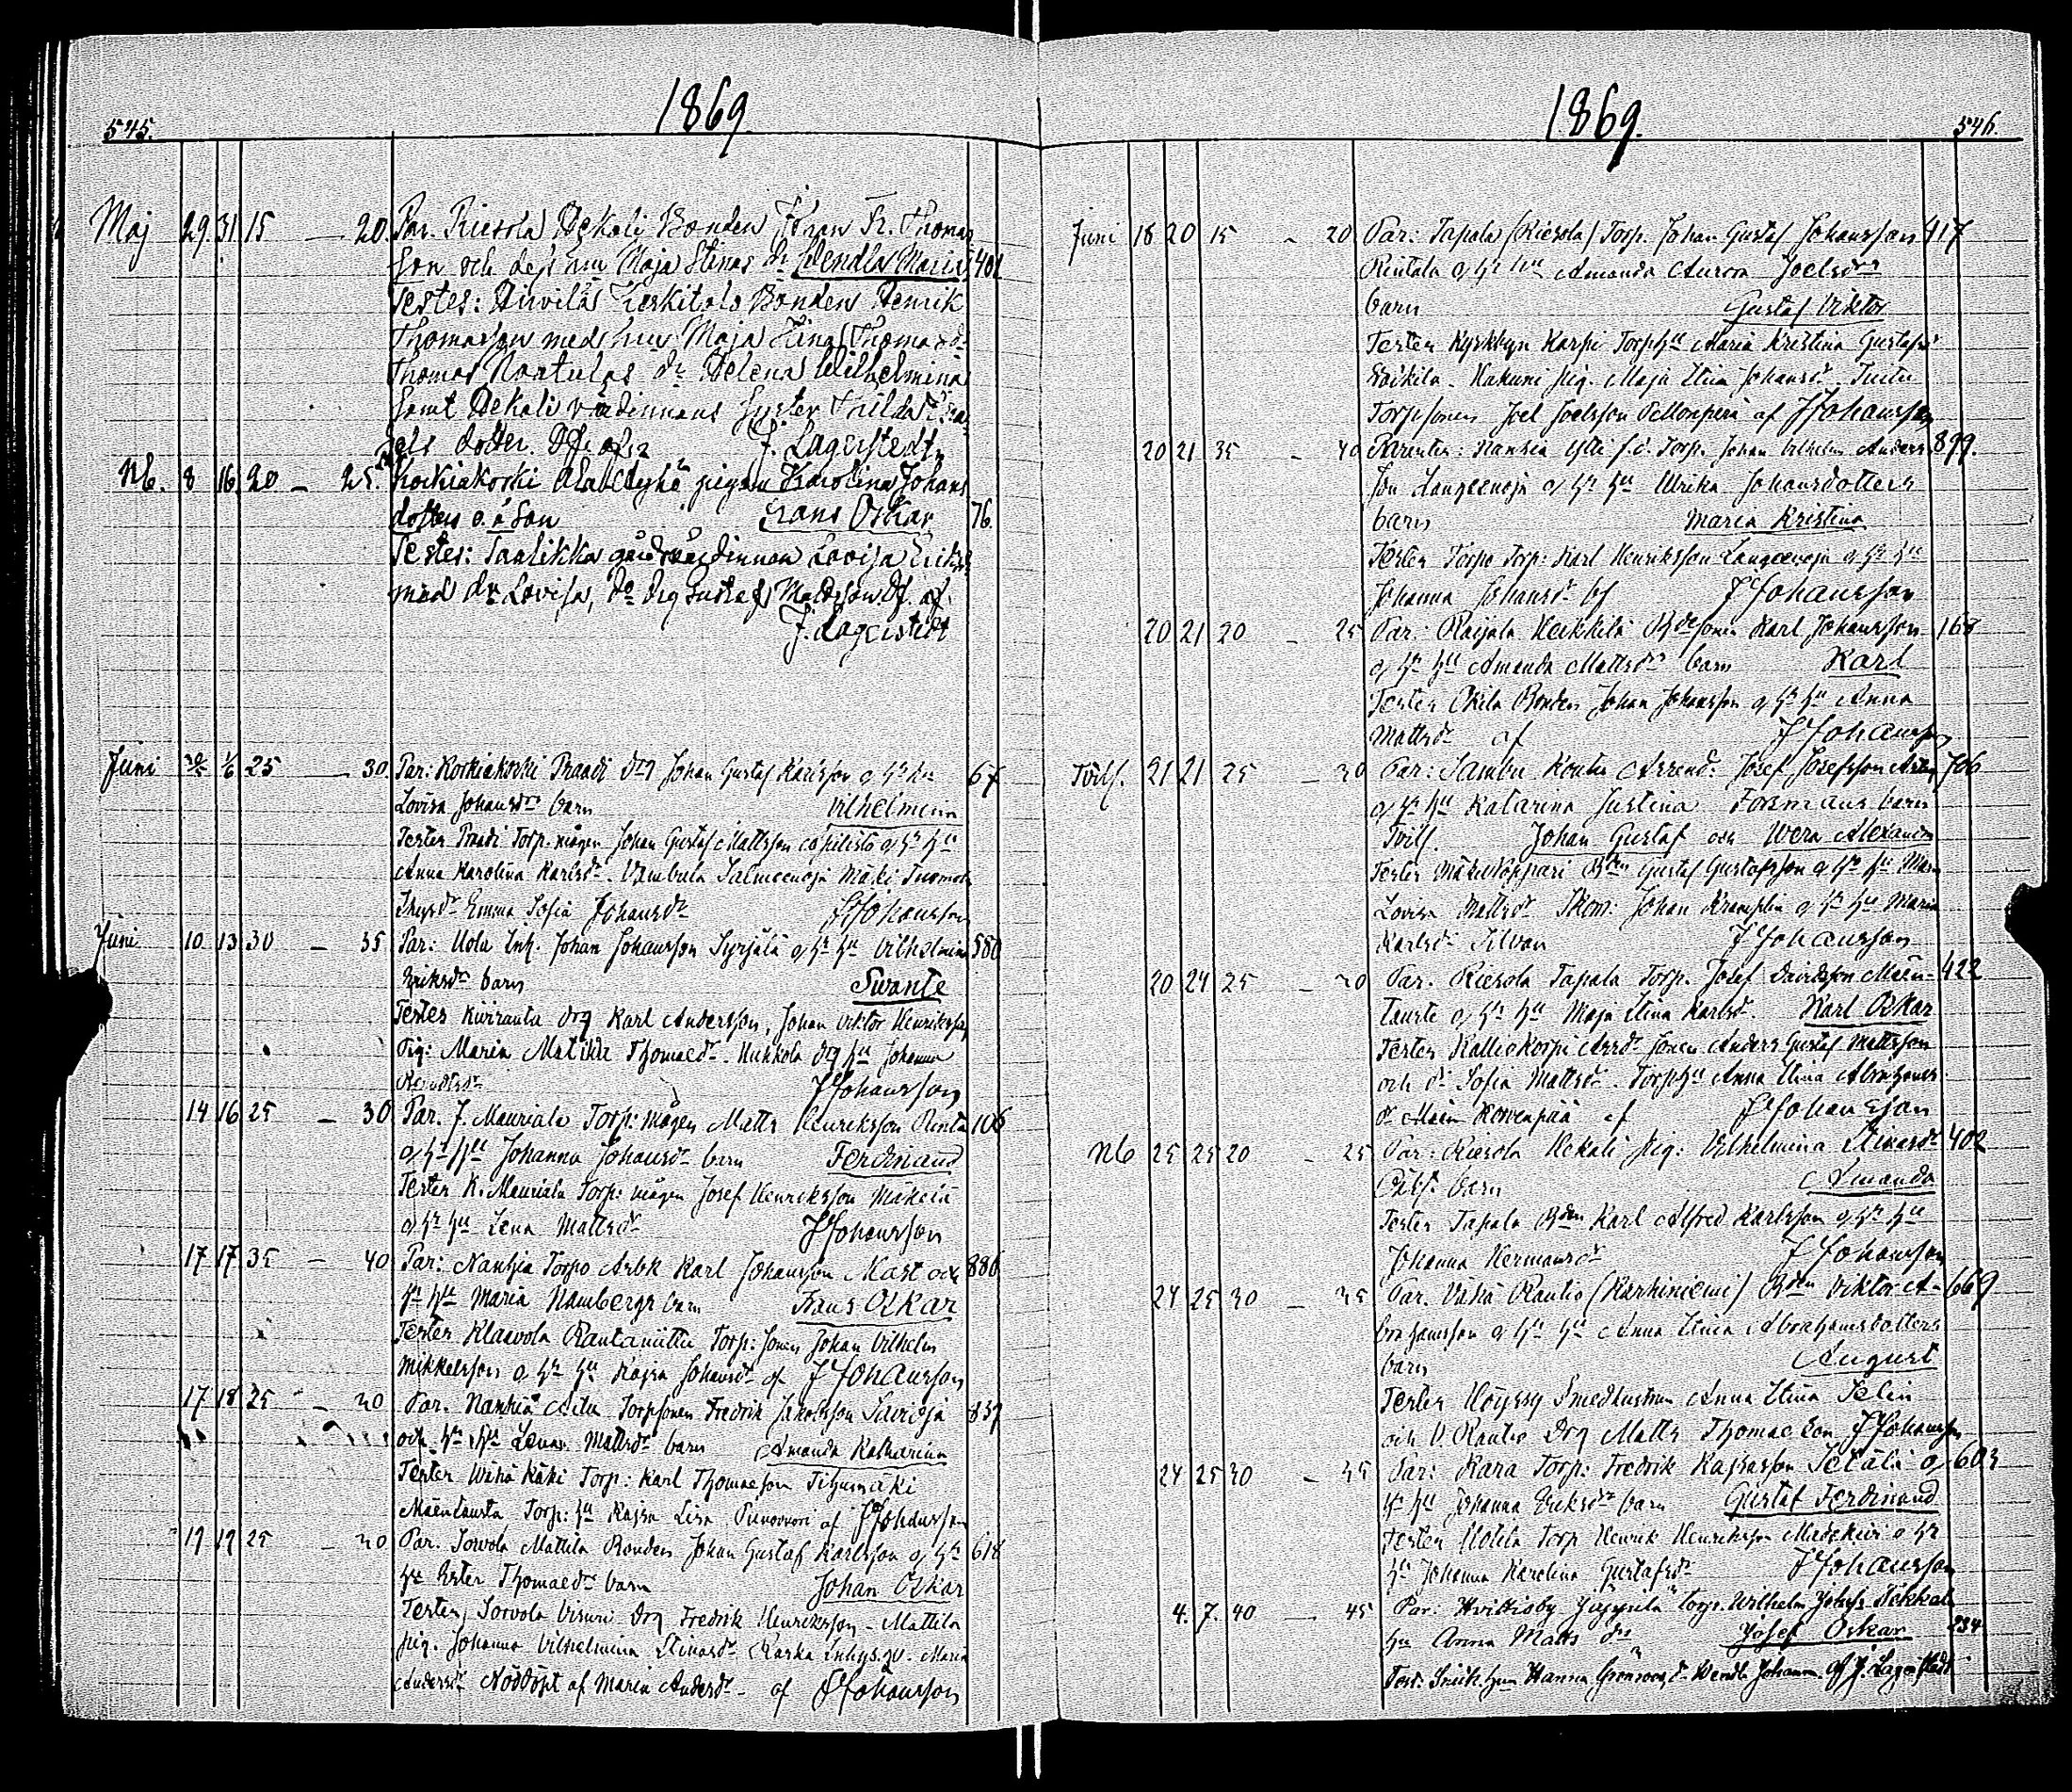 1869.
545.
Maj 29. 31 15 — 20. Par. Riesola Hekali Bonden Johan Fr. Thomas
son och dess hu Maja Stinas dr Wendla Maria 401
Testes: Keskitalo Bonden Henrik
Thomasson med hu Maja Stina Thomasdr
Thomas dr Helena Wilhelmina
samt Hekali värdinnans syster Hilda
dotter. J. Lagerstedt
Nb. 8 16 20 — 25. Koskiakoski pigan Karolina Johans
dotters o. ä Son Frans Oskar 76.
Testes: Saalikka gårdsvärdinnan Lovisa Eriks
med dr Lovisa, Do drg Gustaf Mattsson. Df. af.
J. Lagerstedt
Juni 1/6 25 — 30 Par: Koskiakoski Praadi drg Johan Gustaf Karlsson o hs hu 67
Lovisa Johansdrs barn Vilhelmina
Testes Praadi Torp. mågen Johan Gustaf Mattsson o hs hu
Anna Karolina Karlsdr. Vambula Salmeenoja Mäki
Emma Sofia Johansdr JJohansson
Juni 10 13 30 — 35 Par: Uola Inh. Johan Johansson Syrjälä o hs hu Vilhelmina 580
Eriksdr barn Swante
Testes Kiviranta drg Karl Andersson, Johan Viktor Henriksson
Pig: Maria Matilda Thomaedr. Hukkola drg hu Johanna
JJohansson
14 16 25 — 30 Par. J. Mauriala Torp: mågen Matts Henriksson 106
o hs hu Johanna Johansdr barn Ferdinand
Testes K. Mauriala Torp: mågen Josef Henriksson Mäkelä
o hs hu Lena Mattsdr JJohansson
17 17 35 — 40 Par: Nanhia Torpo Arbk Karl Johansson Mast och 886
hs hu Maria Hambergs barn Frans Oskar
Testes Klaavola Rautaniittu Torp: sonen Johan Vilhelm
Mikkelsson o hs hu Kajsa Johansdr af JJohansson
17 18 25 — 30 Par. Nanhia Aitu Torpsonen Fredrik Jakobsson 837
och hs hu Lenas Mattsdr barn Amanda Katharina
Testes Wähä Käki Torp: Karl Thomaesson
Mäentausta Torp: hu Kajsa Lisa af JJohansson
17 19 25 — 30 Par. Sorvola Mattila Bonden Johan Gustaf Karlsson o hs 618
hu Ester Thomaedr barn Johan Oskar
Testes Sorvola Visuri Drg Fredrik Henriksson - Mattila
pig. Johanna Vilhelmina Stinasdr Karka Inhys. Maria
Andersdr Nöddöpt af Maria Andersdr - af JJohansson
1869.
546.
Juni 18 20 15 — 20 Par: Tapala (Riesola) Torp. Johan Gustaf Johansson 417
Rintala o hs hu Amanda Aurora Joelsdrs
barn Gustaf Viktor
Testes Kyrkbyn Karpi Torp hu Maria Kristina Gustafsdr
Hakuni pig. Maja Stina Johansdr
Torpsonen Joel Joelsson af JJohansson
20 21 35 — 40 Parentes: Nanhia Ylli f.d. Torp. Johan Vilhelm Anders 899.
son Langeenoja o hs hu Ulrika Johansdotters
barn Maria Kristina
Testes Torpo Torp: Karl Henriksson Langeenoja o hs hu
Johanna Johansdr bf JJohansson
20 21 20 — 25 Par: Raijala Heikkilä Bdesonen Karl Johansson 168
o hs hu Amanda Mattsdrs barn Karl
Testes Bonden Johan Johansson o hs hu Anna
Mattsdr af JJohansson
Tvill. 21 21 25 — 30 Par: Sambu Koutu Arrend: Josef Josefsson 706
o hs hu Katarina Justina Forsmans barn
Tvill. Johan Gustaf och Wera Alexandra
Testes Bden Gustaf Gustafsson o hs hu Maria
Lovisa Mattsdr Skom: Johan o hs hu Maria
Karlsdr Silvan JJohansson
20 24 25 — 30 Par. Riesola Tapala Torp. Josef Davidsson Mäen- 422
tausta o hs hu Maja Stina Karlsdr. Karl Oskar
Testes Kalliokorpi Arrd. Sonen Anders Gustaf Mattsson
och dr Sofia Mattsdr. Torp hu Anna Stina Abrahams
dr af JJohansson
Nb 25 25 20 — 25 Par: Riesola Hekali Pig: Vilhelmina Stinasdr 402
barn Amanda
Testes Tapala Bden Karl Alfred Karlsson o hs hu
Johanna Hermansdr JJohansson
24 25 30 — 35 Par. Vähä Rautio (Karhiniemi) Bden Viktor A- 669
brahamsson o hs hu Anna Stina Abrahamsdotters
barn August
Testes Smedhustrun Anna Stina Selin
och V. Rautio Drg Matts Thomaeson JJohansson
24 25 30 — 35 Par: Kara Torp: Fredrik Kajsasson Setälä o 603
hs hu Johanna Eriksdr barn Gustaf Ferdinand
Testes Torp Henrik Henriksson o hs
hu Johanna Karolina Gustafsdr JJohansson
4. 7. 40 — 45 Par: Hvittisby Torp. Wilhelm
hu Anna Matts drs Josef Oskar 234
Test: hu Hanna Grönroos, dr Wendla Johanna. af J. Lagerstedt